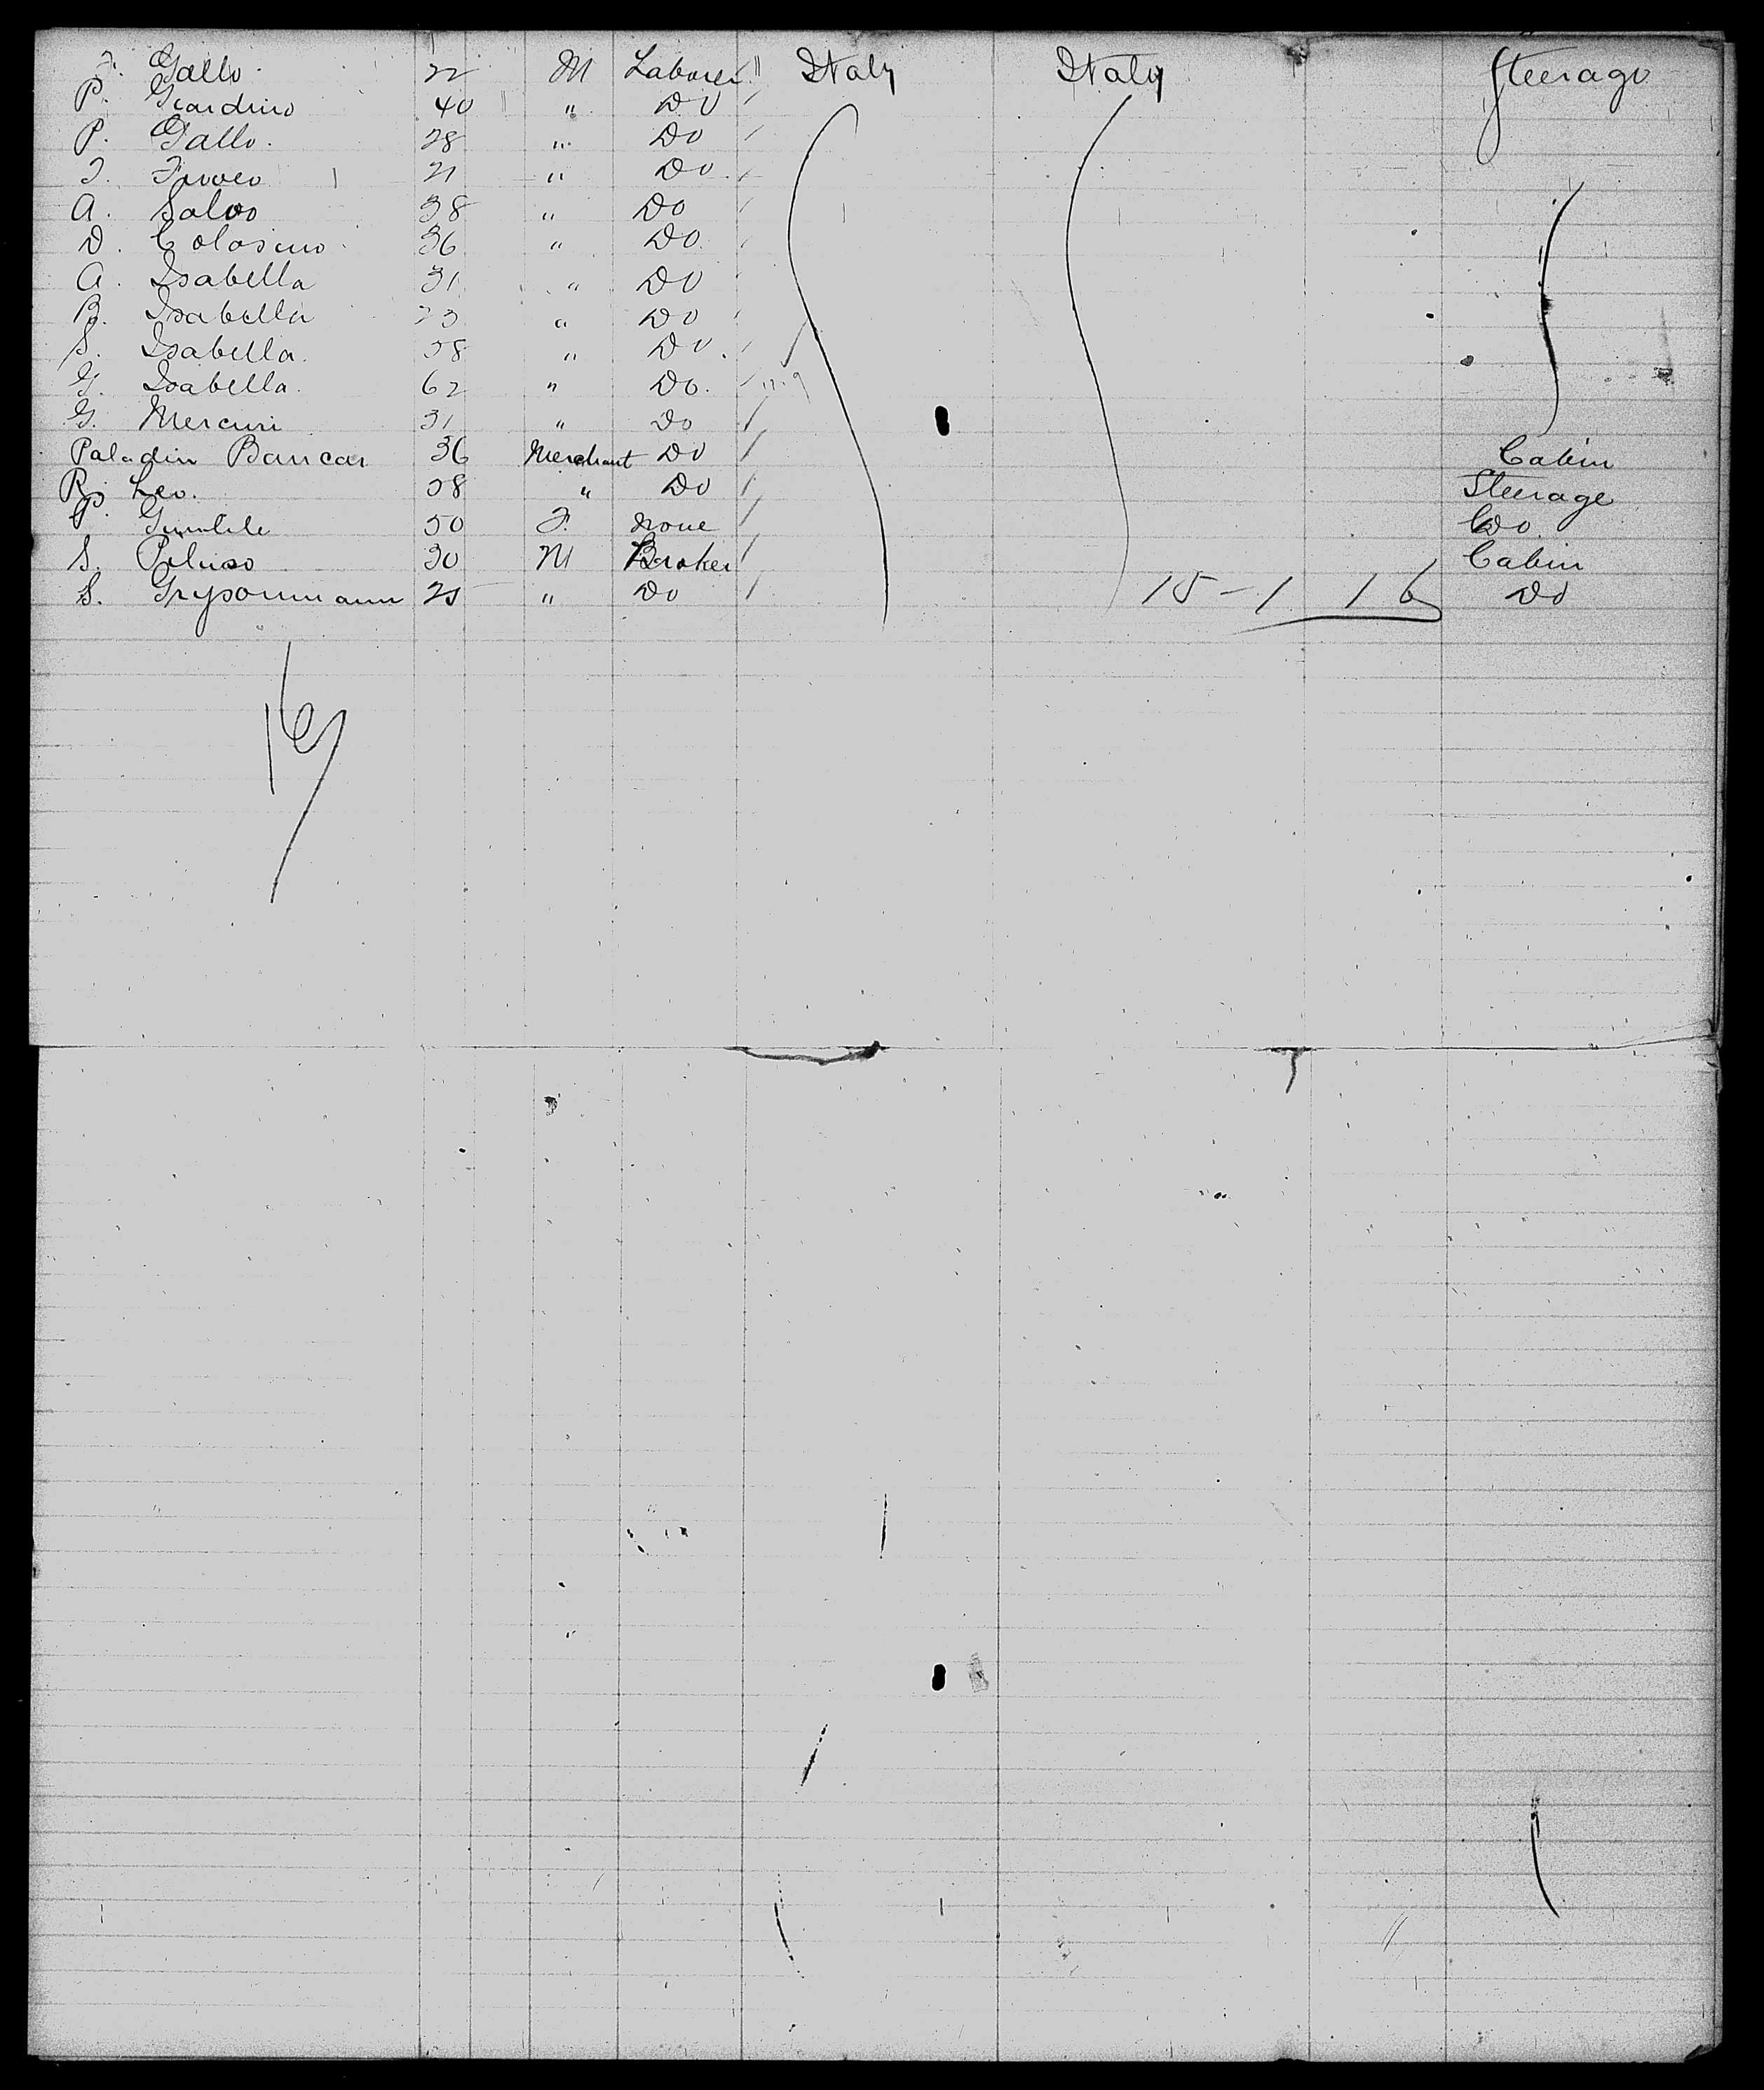 F. Gallo. 22 M Laborer " Italy Italy Steerage
P. Giardino 40 " Do
P. Gallo. 28 " Do
21 " Do
A. Salvo 38 " Do
D. Colosimo 36 " Do.
A. Isabella 31 " Do
B. Isabella 23 " Do
S. Isabella. 38 " Do.
G. Isabella. 62 " Do.
G. Mercuri 31 " Do
Paladin Bancar 36 Merchant Do Cabin
R. Leo. 38 " Do Steerage
50 F. None Do.
S. Peluso 30 M Broker Cabin
S. 25 " Do 15-1 16 Do
16